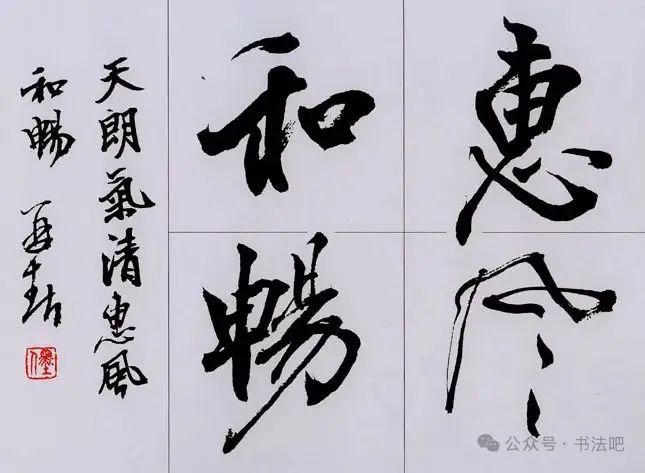 惠风
和暢
天朗氣清惠風
和暢
公众号·书法吧